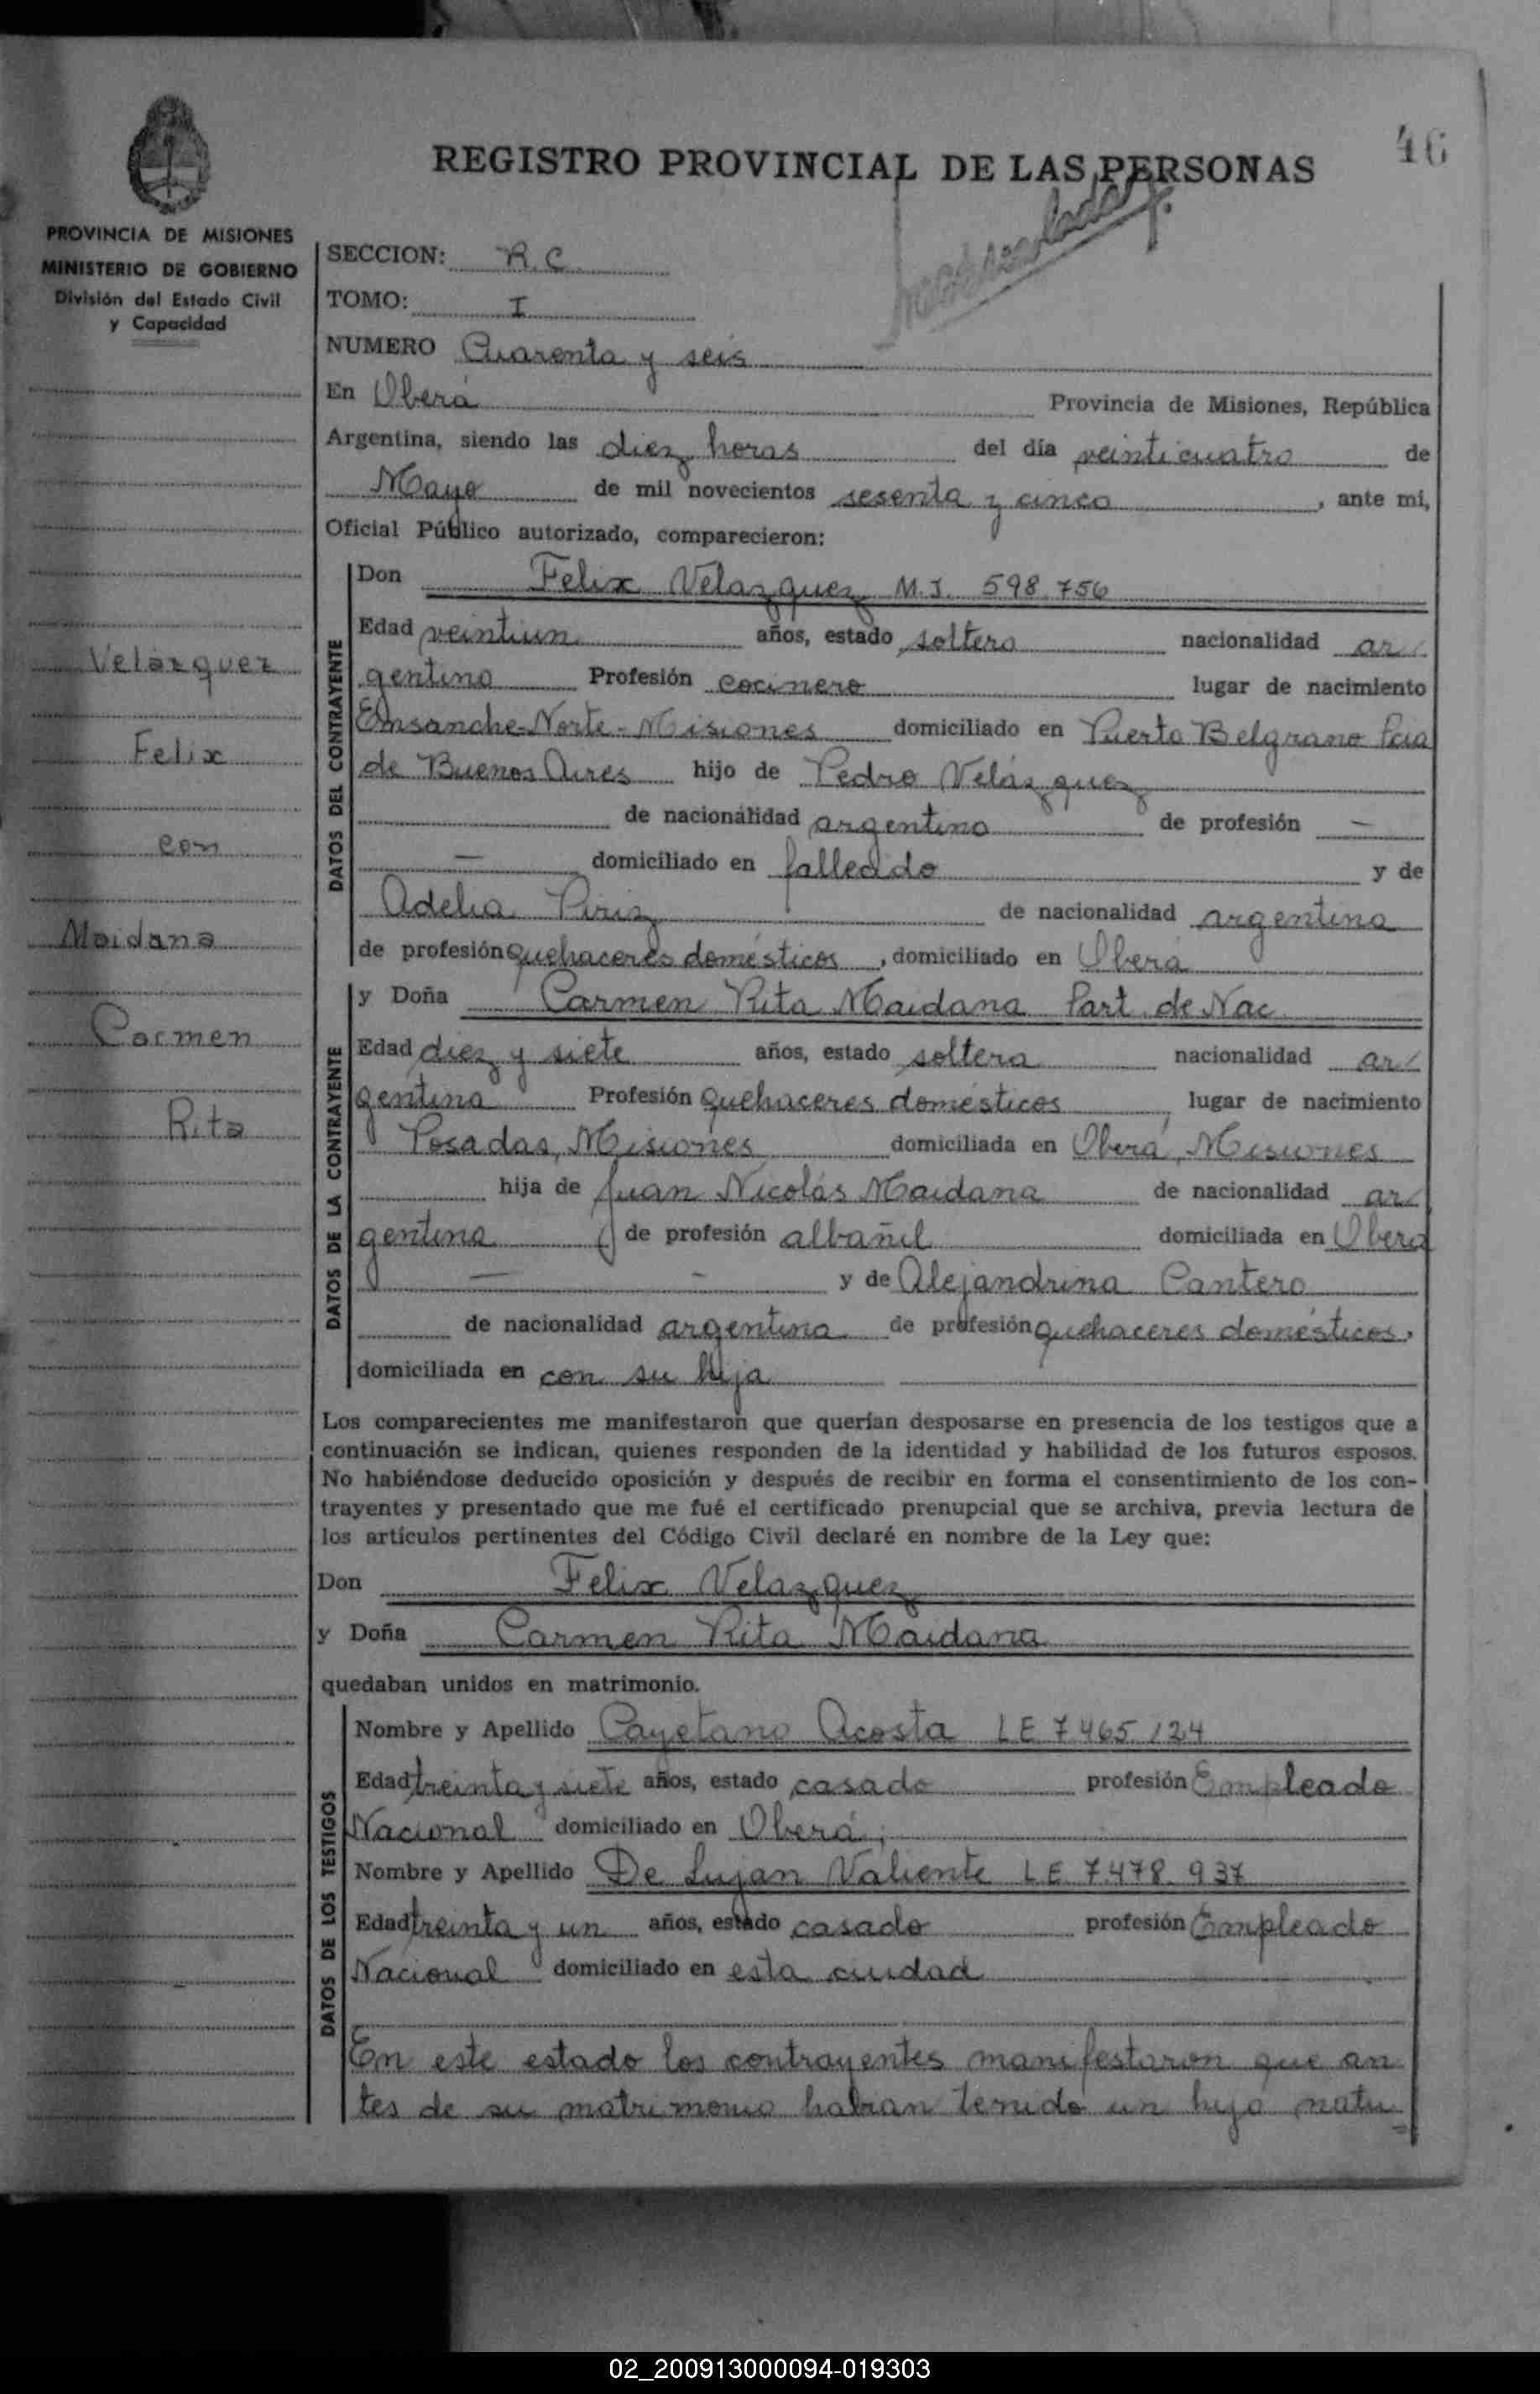 46
REGISTRO PROVINCIAL DE LAS PERSONAS
PROVINCIA DE MISIONES
MINISTERIO DE GOBIERNO
División del Estado Civil
y Capacidad
Velázquez
Felix
con
Maidana
Carmen
Rita
SECCION: R.C
TOMO: I
NUMERO Cuarenta y seis
En Oberá Provincia de Misiones, República
Argentina, siendo las diez horas del día veinticuatro de
Mayo de mil novecientos sesenta y cinco, ante mi,
Oficial Público autorizado, comparecieron:
DATOS DEL CONTRAYENTE
Don Felix Velazquez M.I. 598.756
Edad veintiun años, estado soltero nacionalidad ar
gentino Profesión cocinero lugar de nacimiento
Ensanche-Norte-Misiones domiciliado en Puerto Belgrano Pcia
de Buenos Aires hijo de Pedro Velázquez
de nacionalidad argentino de profesión —
— domiciliado en fallecido y de
Adelia Piriz de nacionalidad argentina
de profesión quehaceres domésticos, domiciliado en Oberá
DATOS DE LA CONTRAYENTE
y Doña Carmen Rita Maidana Part. de Nac
Edad diez y siete años, estado soltera nacionalidad ar
gentina Profesión quehaceres domésticos lugar de nacimiento
Posadas, Misiones domiciliada en Oberá, Misiones
hija de Juan Nicolás Maidana de nacionalidad ar
gentina de profesión albañil domiciliada en Oberá
— — y de Alejandrina Cantero
de nacionalidad argentina de profesión quehaceres domésticos,
domiciliada en con su hija
Los comparecientes me manifestaron que querían desposarse en presencia de los testigos que a
continuación se indican, quienes responden de la identidad y habilidad de los futuros esposos.
No habiéndose deducido oposición y después de recibir en forma el consentimiento de los con-
trayentes y presentado que me fué el certificado prenupcial que se archiva, previa lectura de
los artículos pertinentes del Código Civil declaré en nombre de la Ley que:
Don Felix Velazquez
y Doña Carmen Rita Maidana
quedaban unidos en matrimonio.
DATOS DE LOS TESTIGOS
Nombre y Apellido Cayetano Acosta LE 7.465.124
Edad treinta y siete años, estado casado profesión Empleado
Nacional domiciliado en Oberá;
Nombre y Apellido De Lujan Valiente LE 7.478.937
Edad treinta y un años, estado casado profesión Empleado
Nacional domiciliado en esta ciudad
En este estado los contrayentes manifestaron que an
tes de su matrimonio habian tenido un hijo natu
02_200913000094-019303